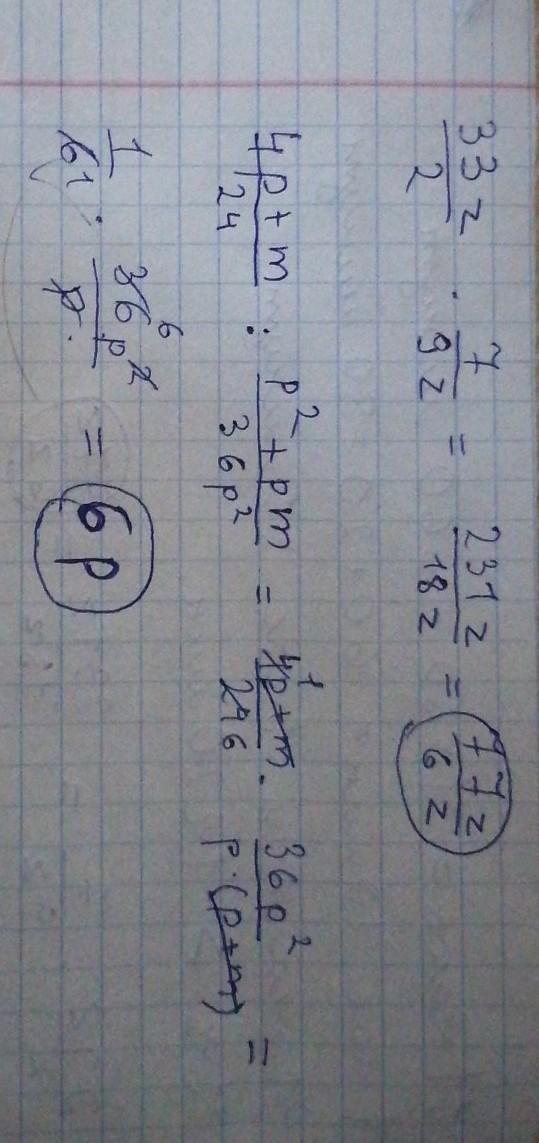 33z/2 · 7/9z = 231z/18z = 77z/6z
4p+m/24 : p²+pm/36p² = 4¹p+m/24 6 · 36p²/p·(p+m) =
1/6 1 · 36⁶p²/p = 6p